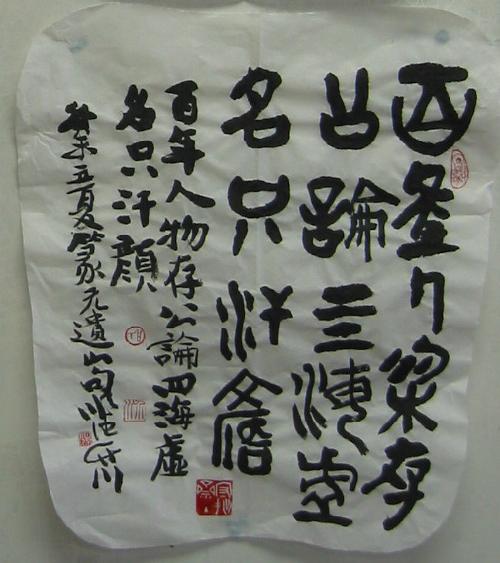 百年人物存
公論四海虛
名只汗顏
百年人物存公論四海虛
名只汗顏
癸未立夏篆元遺山句